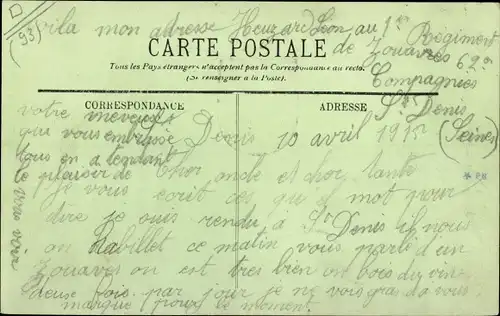 (93)
voila mon adresse Heuzard Léon au 1er Regiment
de Zouaves 62me
Compagnies
St Denis
(Seines)
CARTE POSTALE
Tous les Pays étrangers n'acceptent pas la Correspondance au recto.
(Se renseigner à la Poste).
CORRESPONDANCE
ADRESSE
votre neveu
que vous embrasse
tous en atendant
le plaisir de
vous voir
Denis 10 avril 1915
Cher oncle et cher tante
je vous ecrit ces que mot pour
dire je suis rendu à St Denis il nous
on Rabillet ce matin vous parlé d'un
Zouaves on est tres bien on bois du vin
deuse fois par jour je ne vois gras a vous
marque pour le moment